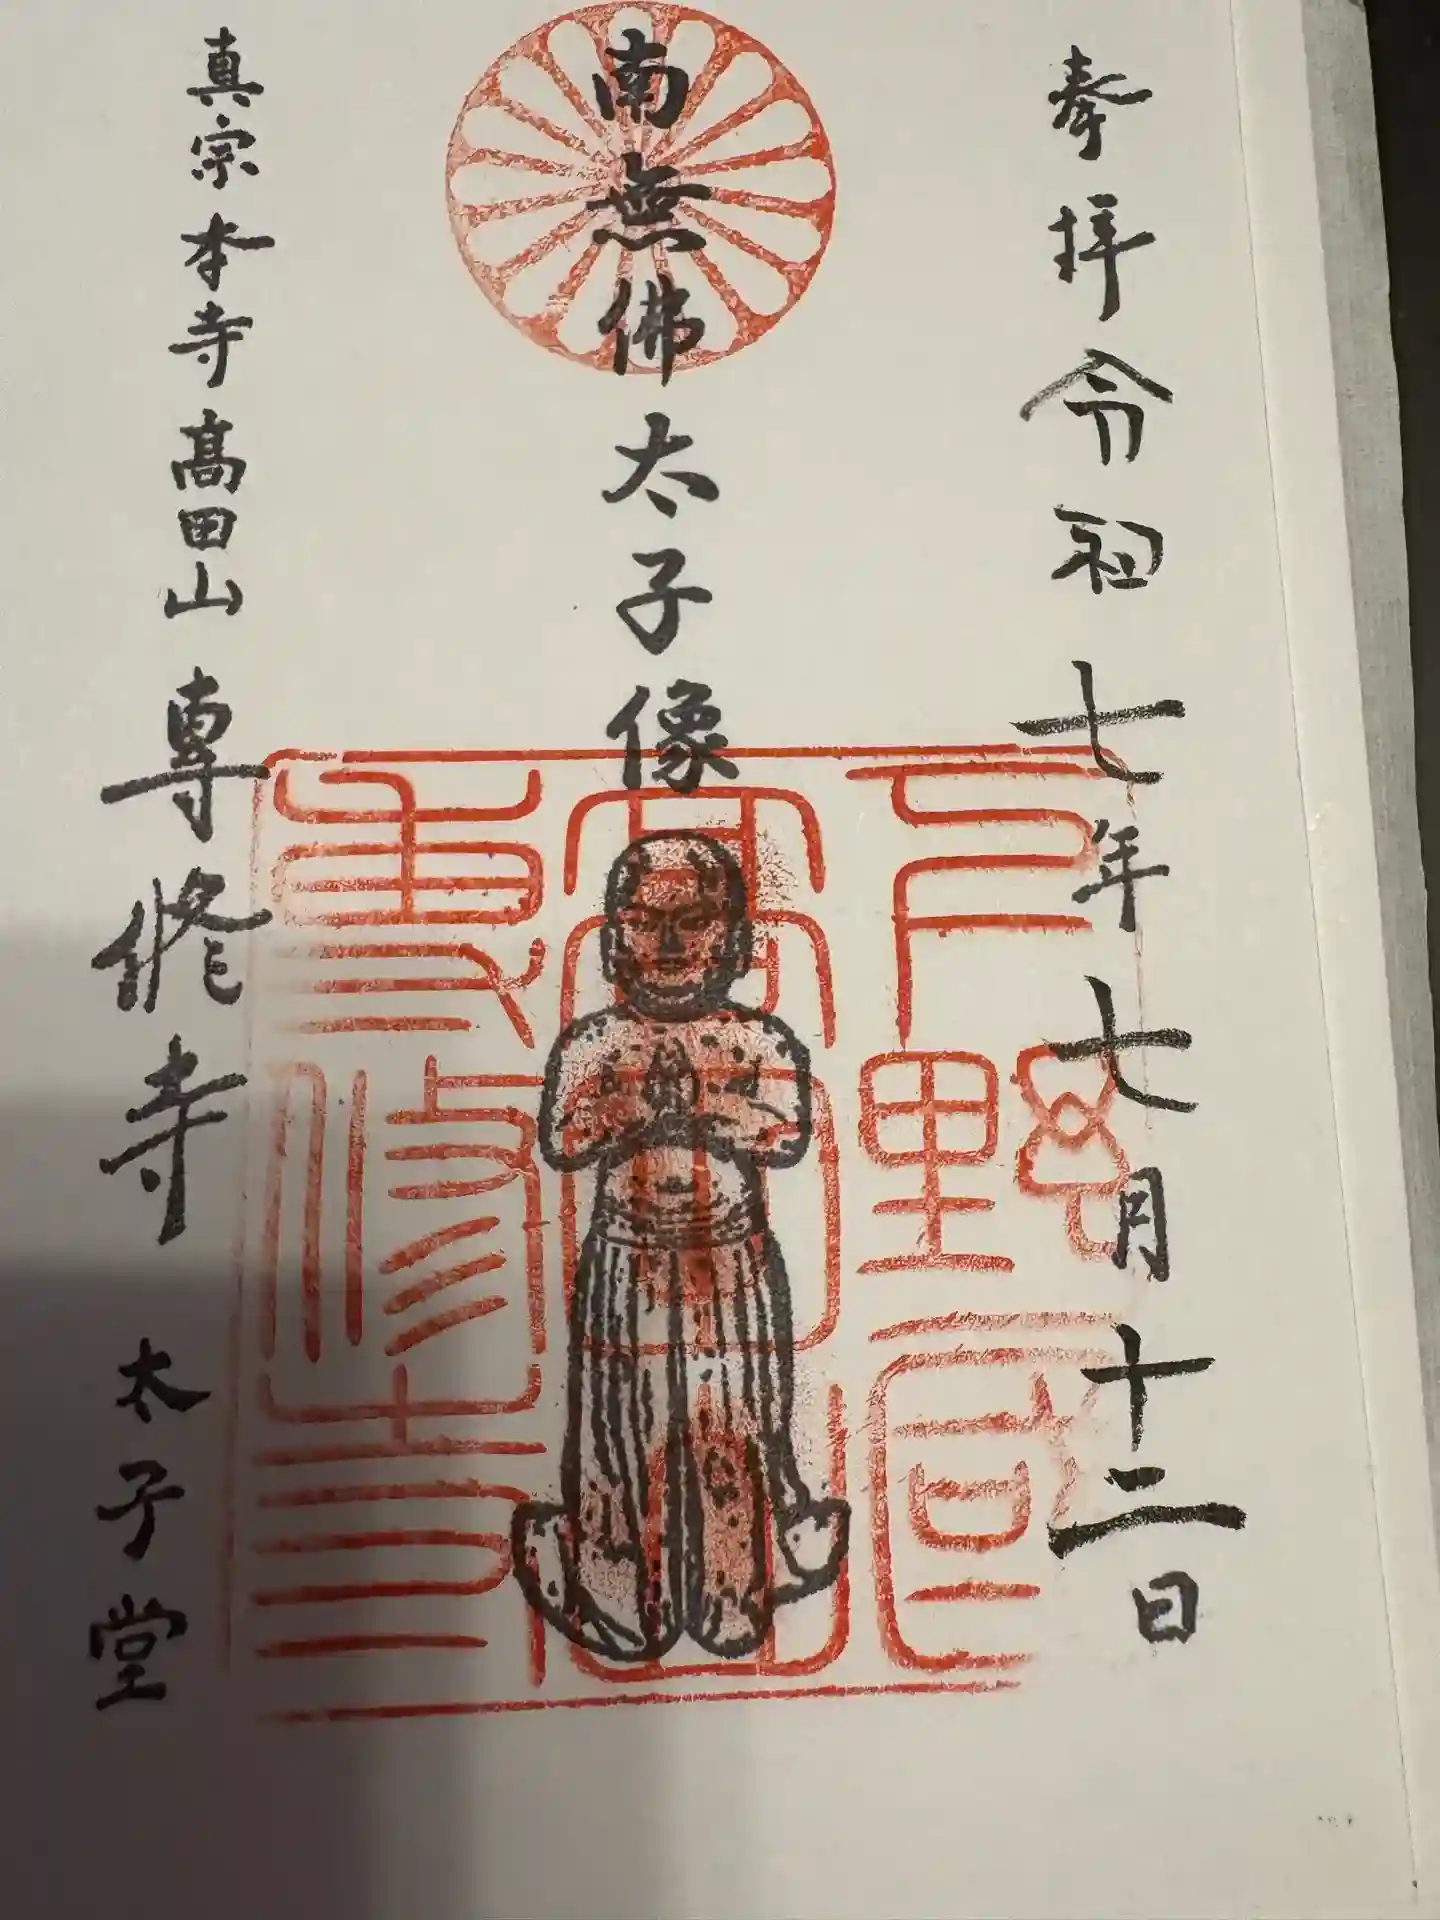 奉拝令和七年七月十二日
南無佛太子像
真宗本寺高田山専修寺太子堂
下野國
高田山
専修寺